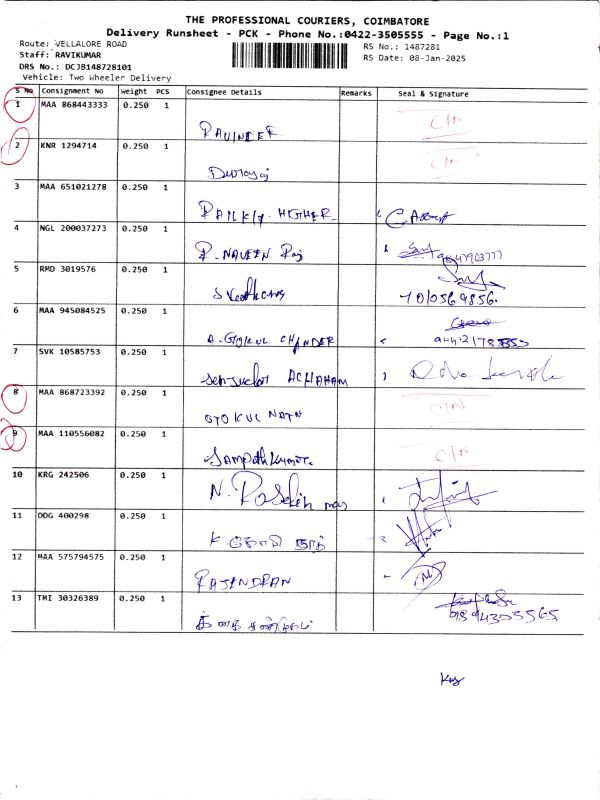 THE PROFESSIONAL COURIERS, COIMBATORE
Delivery Runsheet - PCK - Phone No.:0422-3505555 - Page No.:1
Route: VELLALORE ROAD
Staff: RAVIKUMAR
DRS No.: DCJB148728101
Vehicle: Two Wheeler Delivery
RS No.: 1487281
RS Date: 08-Jan-2025
S No Consignment No Weight PCS Consignee Details Remarks Seal & Signature
1 MAA 868443333 0.250 1 RAVINDER C/N
2 KNR 1294714 0.250 1 Durairaj C/N
3 MAA 651021278 0.250 1
4 NGL 200037273 0.250 1 R. NAVEEN Raj
5 RMD 3019576 0.250 1
6 MAA 945084525 0.250 1 A. GOKUL CHANDER
7 SVK 10585753 0.250 1 ACHAHAM
8 MAA 868723392 0.250 1 GOKUL NATH C/N
9 MAA 110556082 0.250 1 Sampathkumar. C/N
10 KRG 242506 0.250 1 N.
11 DDG 400298 0.250 1
12 MAA 575794575 0.250 1 RAJENDRAN
13 TMI 30326389 0.250 1